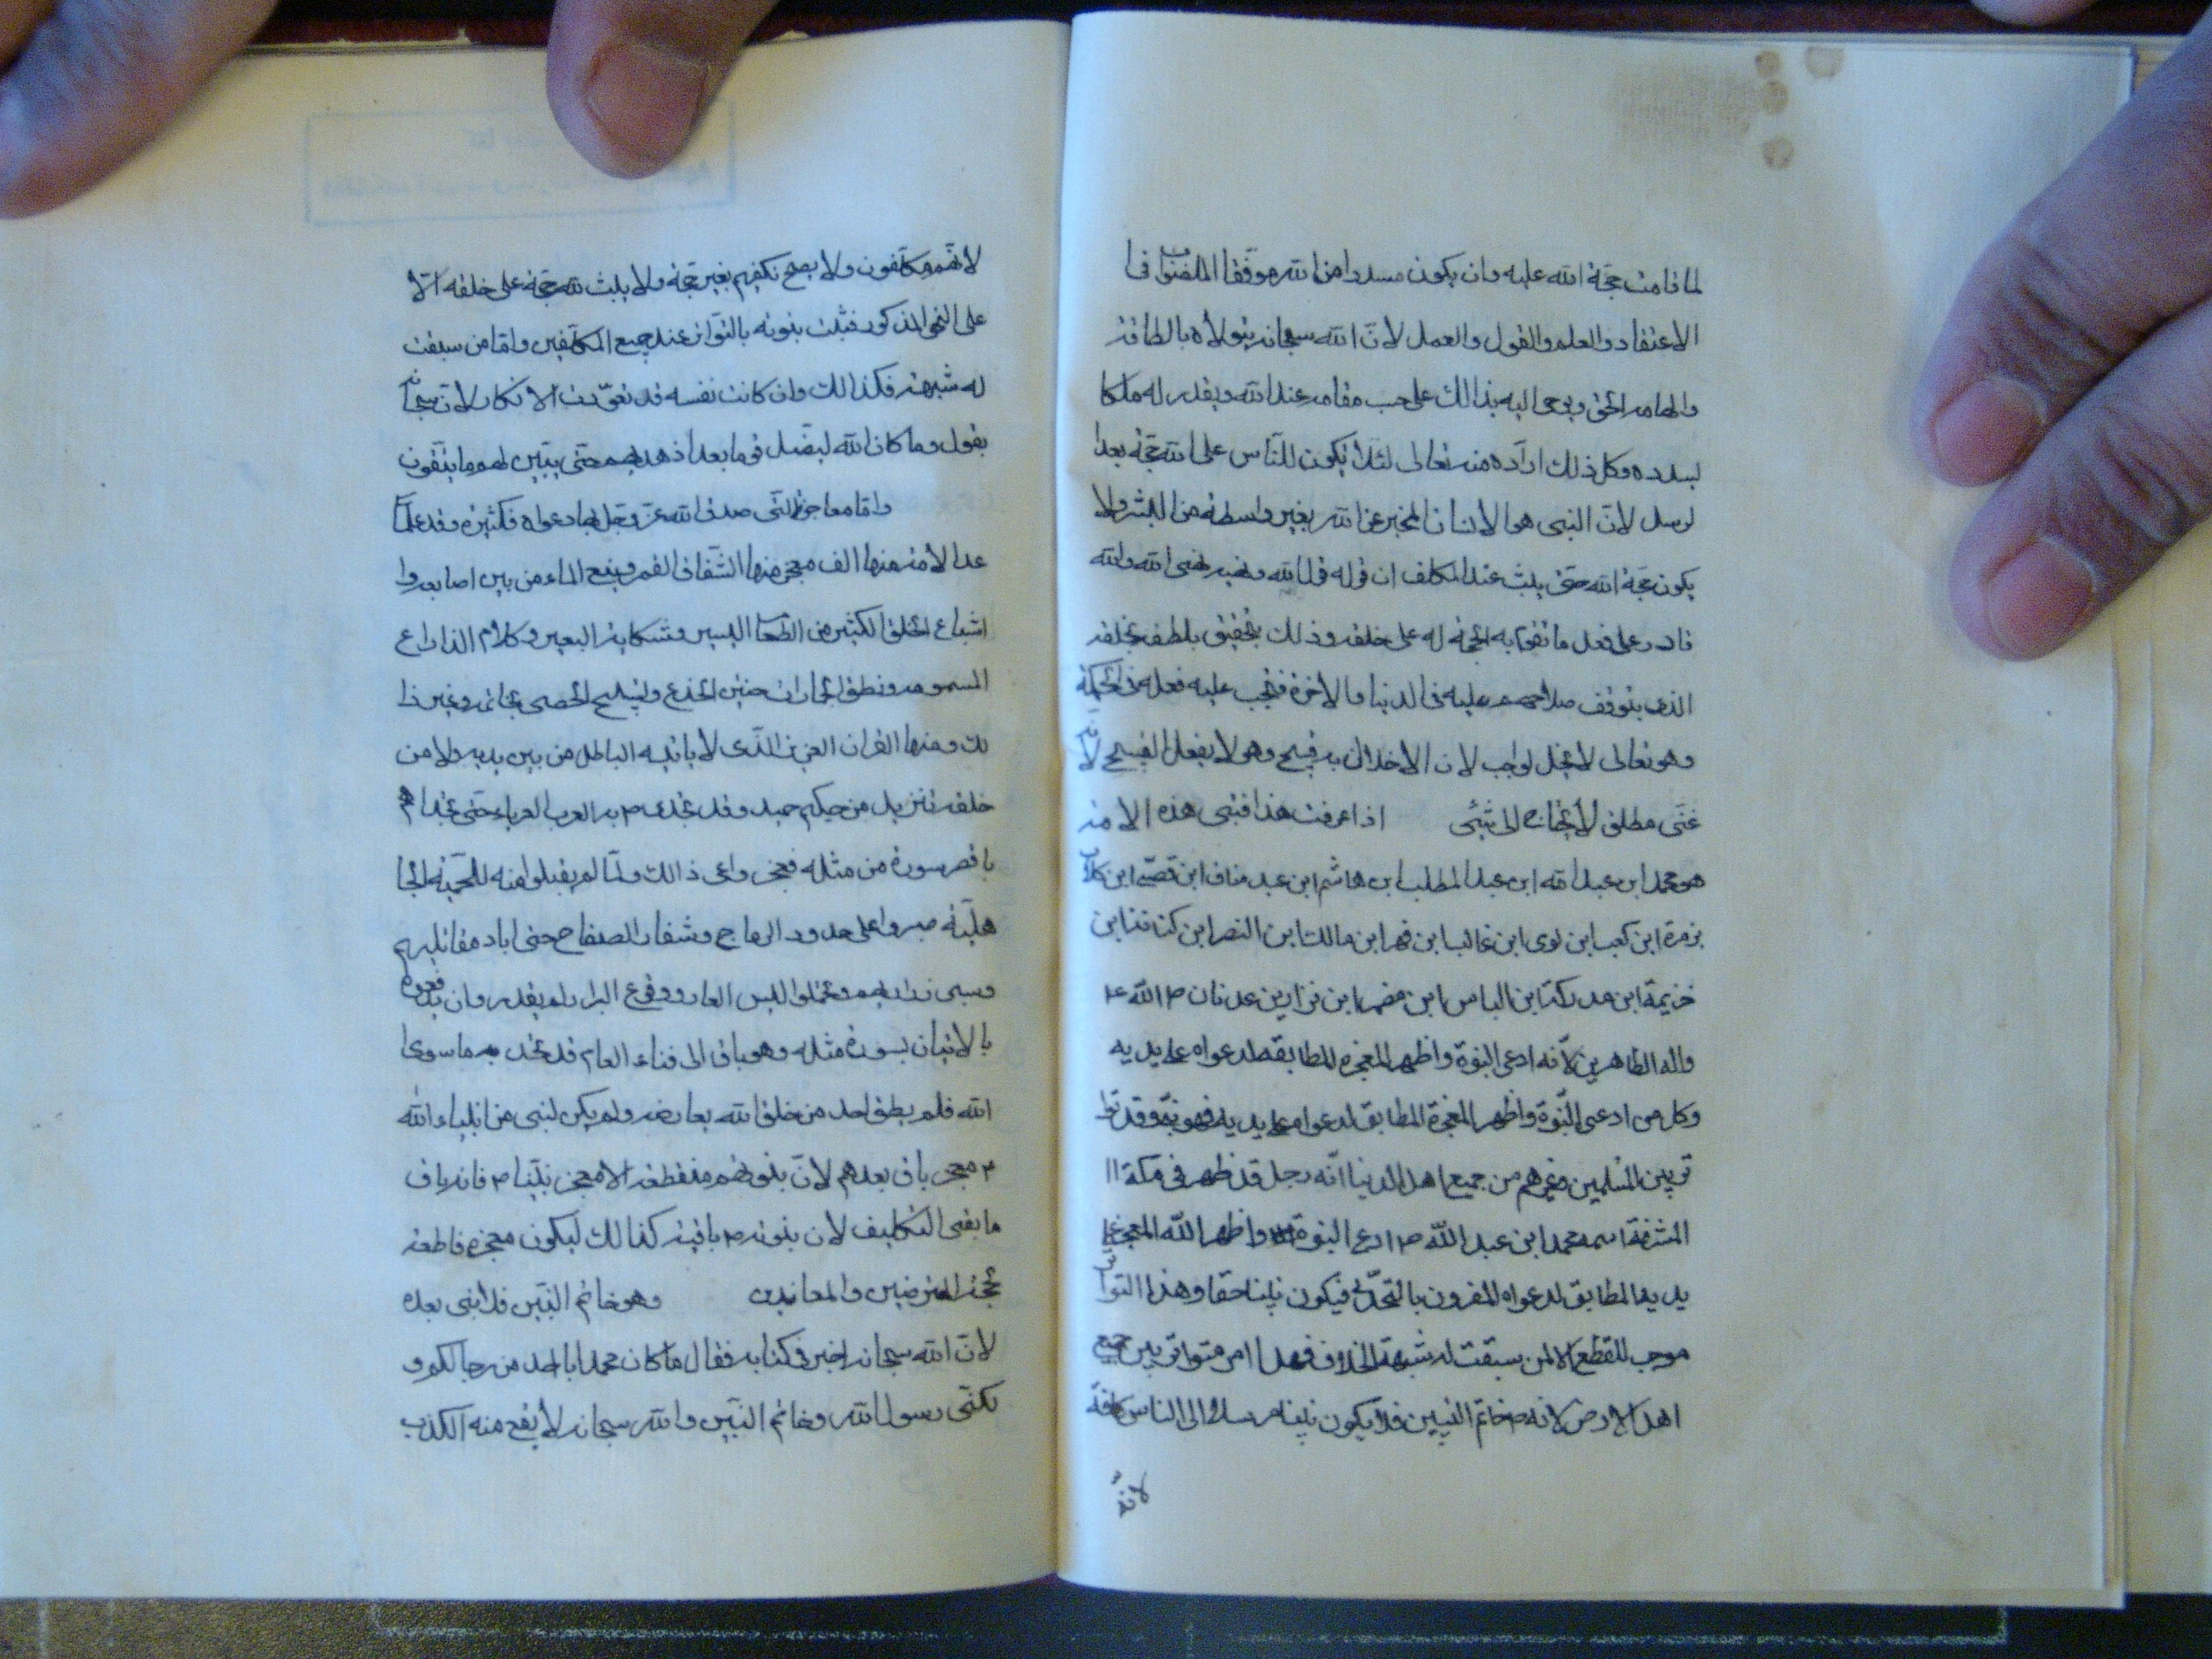 لما قامت حجة الله عليه وان يكون مسددا من الله موفقا للصواب فى ا
الاعتقاد والعلم والقول والعمل لانّ الله سبحانه يتولاه بالطافه
والهامه الحق ويوحى اليه بذالك على حسب مقامه عند الله ويقدر له ملكا
يسدده وكل ذلك اراده منه تعالى لئلا يكون للناس على الله حجة بعد ا
لرسل لانّ النبى هو الانسان المخبر عن الله بغير واسطة من البشر ولا
يكون حجة الله حتى يثبت عند المكلف ان قوله قول الله ونهيه نهى الله والله
قادر على فعل ما تقوم به الحجة له على خلقه وذلك بتحقيق يلطف بخلقه
الذى يتوقف صلاحهم عليه فى الدنيا والاخرة فيجب عليه فعله فى الحكمة
وهو تعالى لا يخل بواجب لان الاخلال به قبيح وهو لا يفعل القبيح لانه
غنى مطلق لا يحتاج الى شئ اذا عرفت هذا فنبى هذه الامة
هو محمد ابن عبد الله ابن عبد المطلب ابن هاشم ابن عبد مناف ابن قصىّ ابن كلاب
بن مرة ابن كعب ابن لوى ابن غالب ابن فهر ابن مالك ابن النضر ابن كنانة ابن
خزيمة ابن مدركة ابن الياس ابن مضر ابن نزار بن عدنان ص الله ع
واله الطاهرين لانّه ادعى النبوة واظهر المعجزة المطابقة لدعواه على يديه
وكل من ادعى النّبوة واظهر المعجزة المطابق لدعواه على يديه فهو نبىّ وقد توا
تر بين المسلمين وغيرهم من جميع اهل الدنيا انّه رجل قد ظهر فى مكة ا
المشرفة اسمه محمد ابن عبد اللّه ص ادع النبوة واظهر اللّه المعجز على
يديه المطابق لدعواه المقرون بالتحدّى فيكون نبينا حقا وهذا التواتر
موجب للقطع الا لمن سبقت له شبهة الخلاف فهذا امر متواتر بين جميع
اهل الارض لانه ص خاتم النبيين فلا يكون نبينا مرسلا الى الناس كافة
لانهّ
لانّهم مكلّفون ولا يصح تكليفهم بغير حجة ولا يثبت لله حجة على خلقه الّا
على النحو المذكور فثبتت نبوته بالتواتر عند جميع المكلّفين وامّا من سبقت
له شبهة فكذالك وان كانت نفسه قد تعوّدت الانكار لانّ سبحانه
يقول وما كان الله ليضل قوما بعد اذ هديهم حتى يتبين لهم ما يتقون
وامّا معاجزه التى صدق الله عز وجل بها دعواه فكثيرة وقد علما
عد الامة منها الف معجز منها انشقاق القمر ونبع الماء من بين اصابعه وا
اشباع الخلق الكثير من الطعام اليسير وشكاية البعير وكلام الذراع
المسمومه ونطق الجمادات حنين الجذع وتسبيح الحصى بحاتمه وغير ذا
لك ومنها القران العزيز الذى لا ياتيه الباطل من بين يديه ولا من
خلفه تنزيل من حكيم حميد وقد تحدى ص به العرب العرباء حتى تحداهم
باقصر سورة من مثله فعجزوا عن ذالك ولما لم يقبلوا منه للحمية الجا
هلية صبروا على حدود الرماح وشفار الصفاح حتى اباد مقاتليهم
وسبى ذراريهم وتحملوا لبس العار ووقوع البرار ولم يقدروان يدفعوه
بالاتيان بسورة مثله وهو باق الى فناء العالم قد تحدى به ما سوى ا
الله فلم يطق احد من خلق الله يعارضه ولم يكن لنبى من انبياء الله
ع معجز باق بعدهم لانّ نبوتهم منقطعة الا معجز نبيّنا ص فانه باق
ما بقى التكليف لان نبوته ص باقية كذالك ليكون معجزه قاطعة
لحجة المعترضين والمعاندين وهو خاتم النبيّين فلا نبى بعده
لانّ الله سبحانه اخبر فى كتابه فقال ما كان محمد ابا احد من رجالكم و
لكن رسول الله وخاتم النبيّين والله سبحانه لا يقع منه الكذب